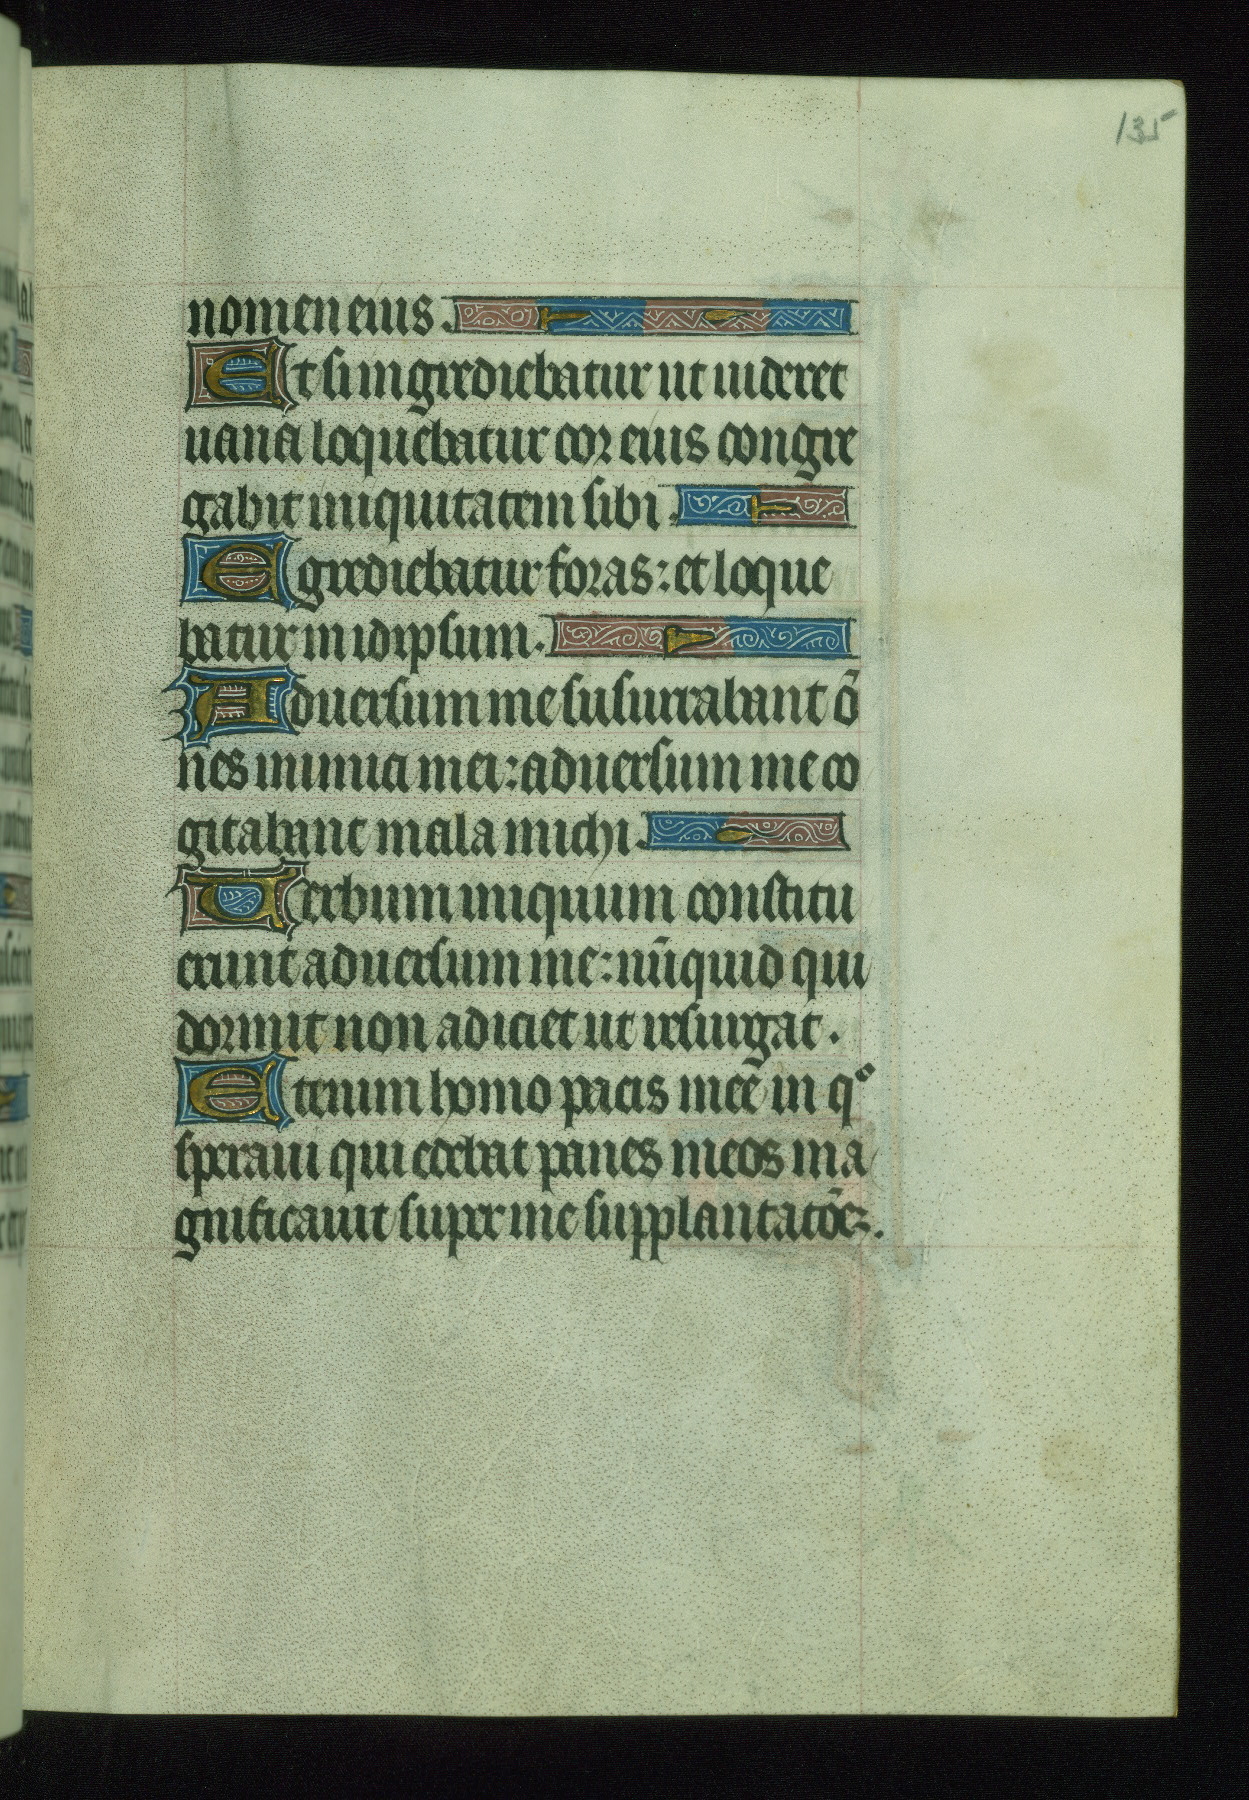 135
nomen eius.
Et si ingrediebatur ut uideret
uana loquebatur cor eius congre
gabit iniquitatem sibi.
Egrediebatur foras: et loque
batur in idipsum.
Aduersum me susurrabant õ
nes inimici mei: aduersum me co
gitabant mala michi.
Uerbum iniquum constitu
erunt aduersum me: nũquid qui
dormit non adiciet ut resurgat.
Etenim homo pacis meē in qͦ
speraui qui edebat panes meos ma
gnificauit super me supplantatōeꝫ.